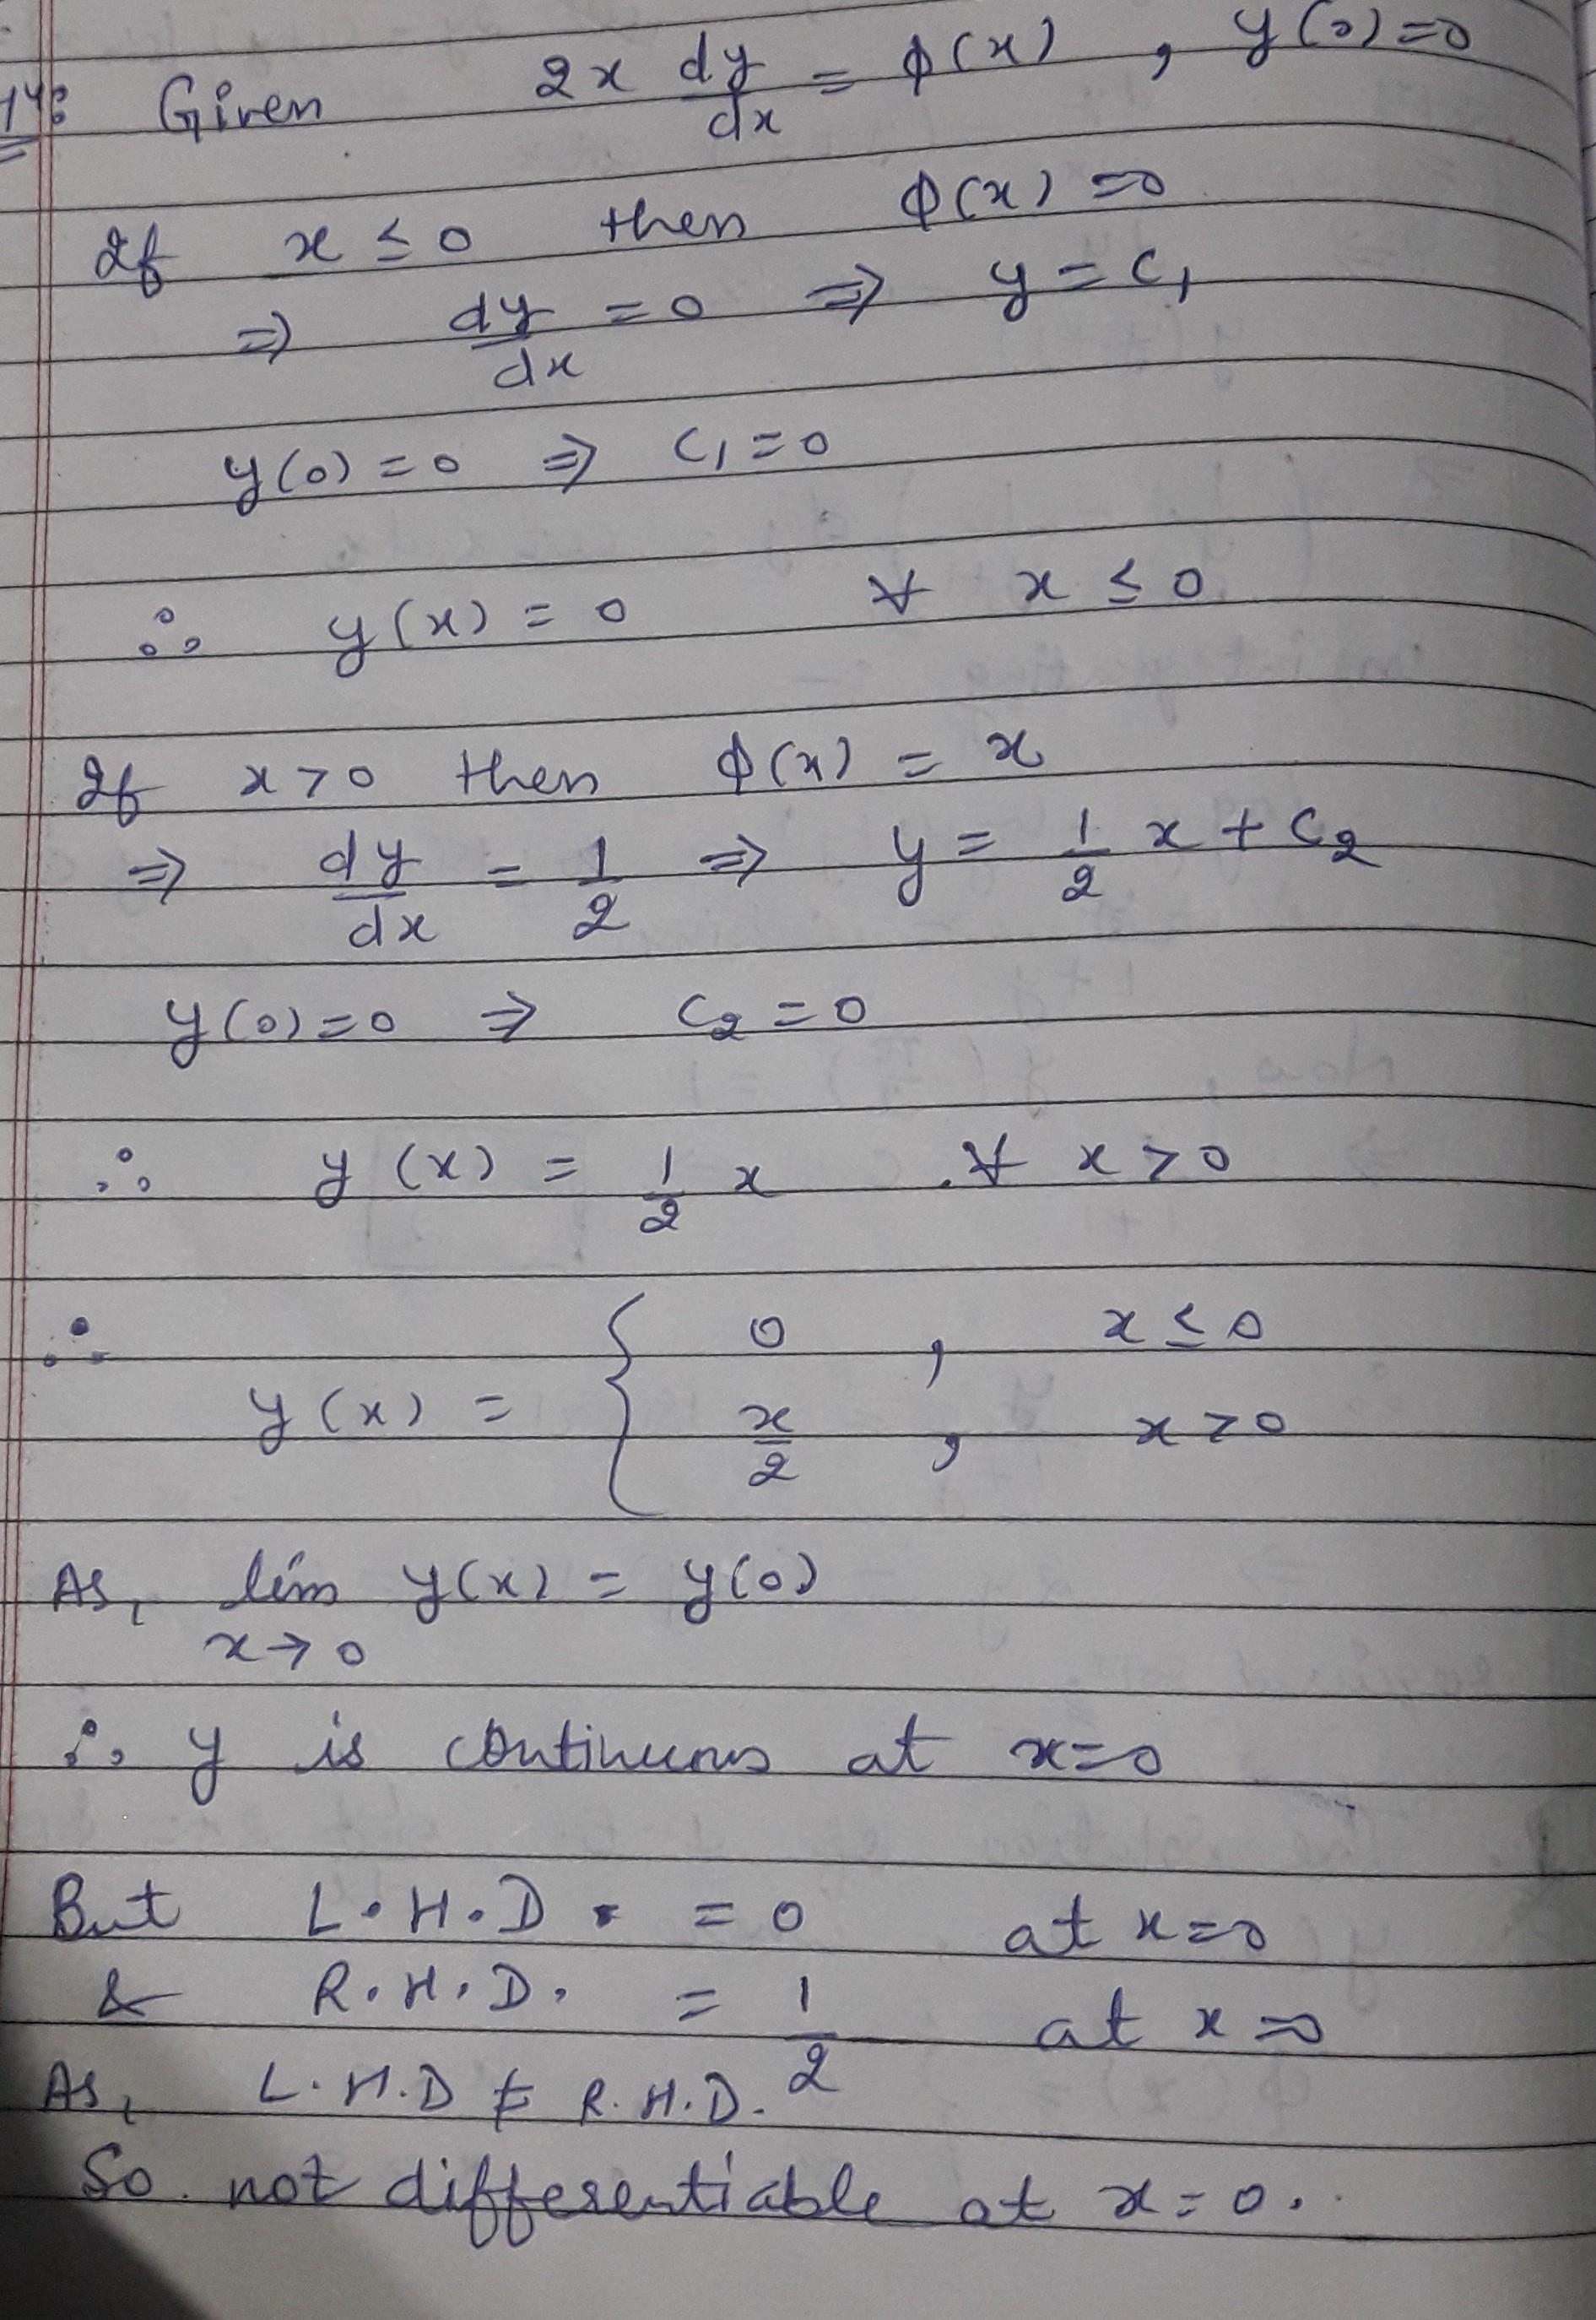 14: Given 2x dy/dx = φ(x) , y(0)=0
If x ≤ 0 then φ(x) =0
⇒ dy/dx = 0 ⇒ y = C₁
y(0) = 0 ⇒ C₁ = 0
∴ y(x) = 0 ∀ x ≤ 0
If x > 0 then φ(x) = x
⇒ dy/dx = 1/2 ⇒ y = 1/2 x + C₂
y(0)=0 ⇒ C₂ = 0
∴ y(x) = 1/2 x ∀ x > 0
∴ y(x) = { 0 , x ≤ 0
x/2 , x > 0
As, lim y(x) = y(0)
x→0
∴ y is continuous at x=0
But L.H.D. = 0 at x=0
& R.H.D. = 1/2 at x=0
As, L.H.D ≠ R.H.D.
So not differentiable at x=0.